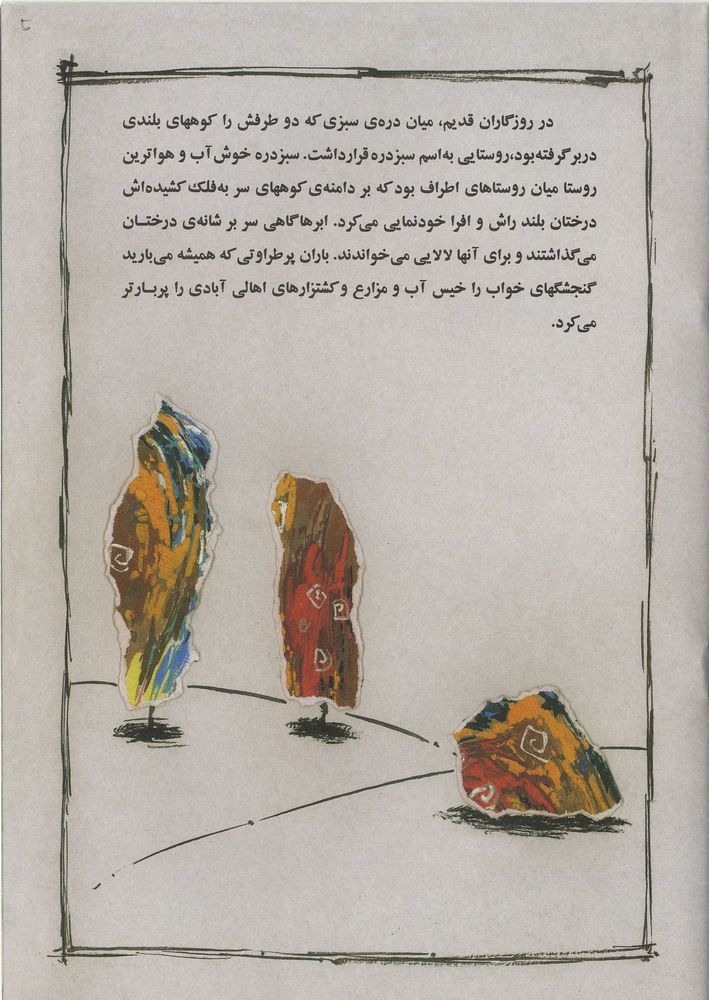 ۵
در روزگاران قدیم، میان دره‌ی سبزی که دو طرفش را کوههای بلندی
دربر گرفته بود، روستایی به اسم سبزدره قرار داشت. سبزدره خوش آب و هواترین
روستا میان روستاهای اطراف بود که بر دامنه‌ی کوههای سر به فلک کشیده‌اش
درختان بلند راش و افرا خودنمایی می‌کرد. ابرها گاهی سر بر شانه‌ی درختـان
می‌گذاشتند و برای آنها لالایی می‌خواندند. باران پرطراوتی که همیشه می‌بارید
گنجشگهای خواب را خیس آب و مزارع و کشتزارهای اهالی آبادی را پربـارتر
می‌کرد.